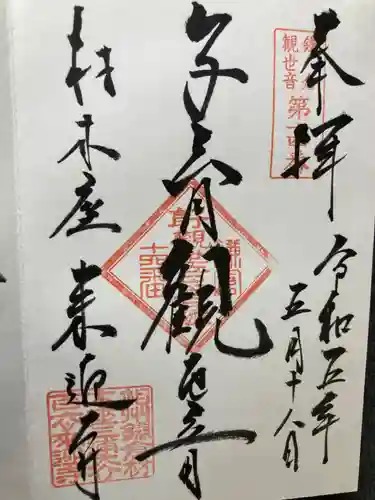 奉拝
令和五年
五月十八日
子育観世音
材木座
来迎寺
鎌倉
観世音
第十四番